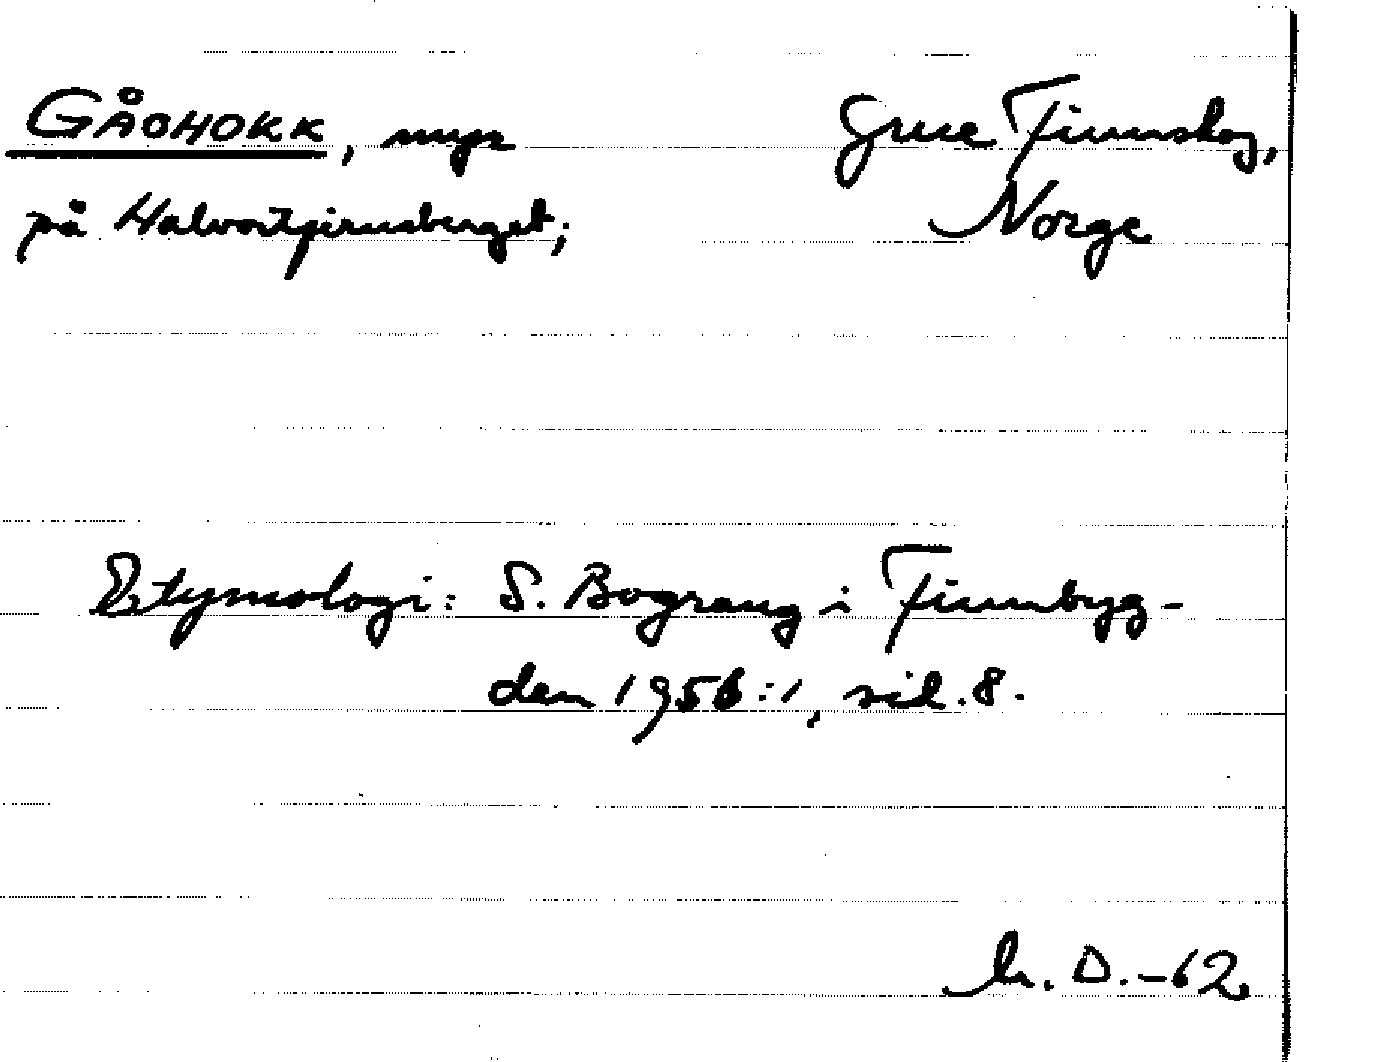 GÅOHOKK, myr
Grue Finnskog,
på Halvortjernsberget;
Norge
Etymologi: S. Bograng i Finnbyg-
den 1956:1, sid. 8.
h. D. -62